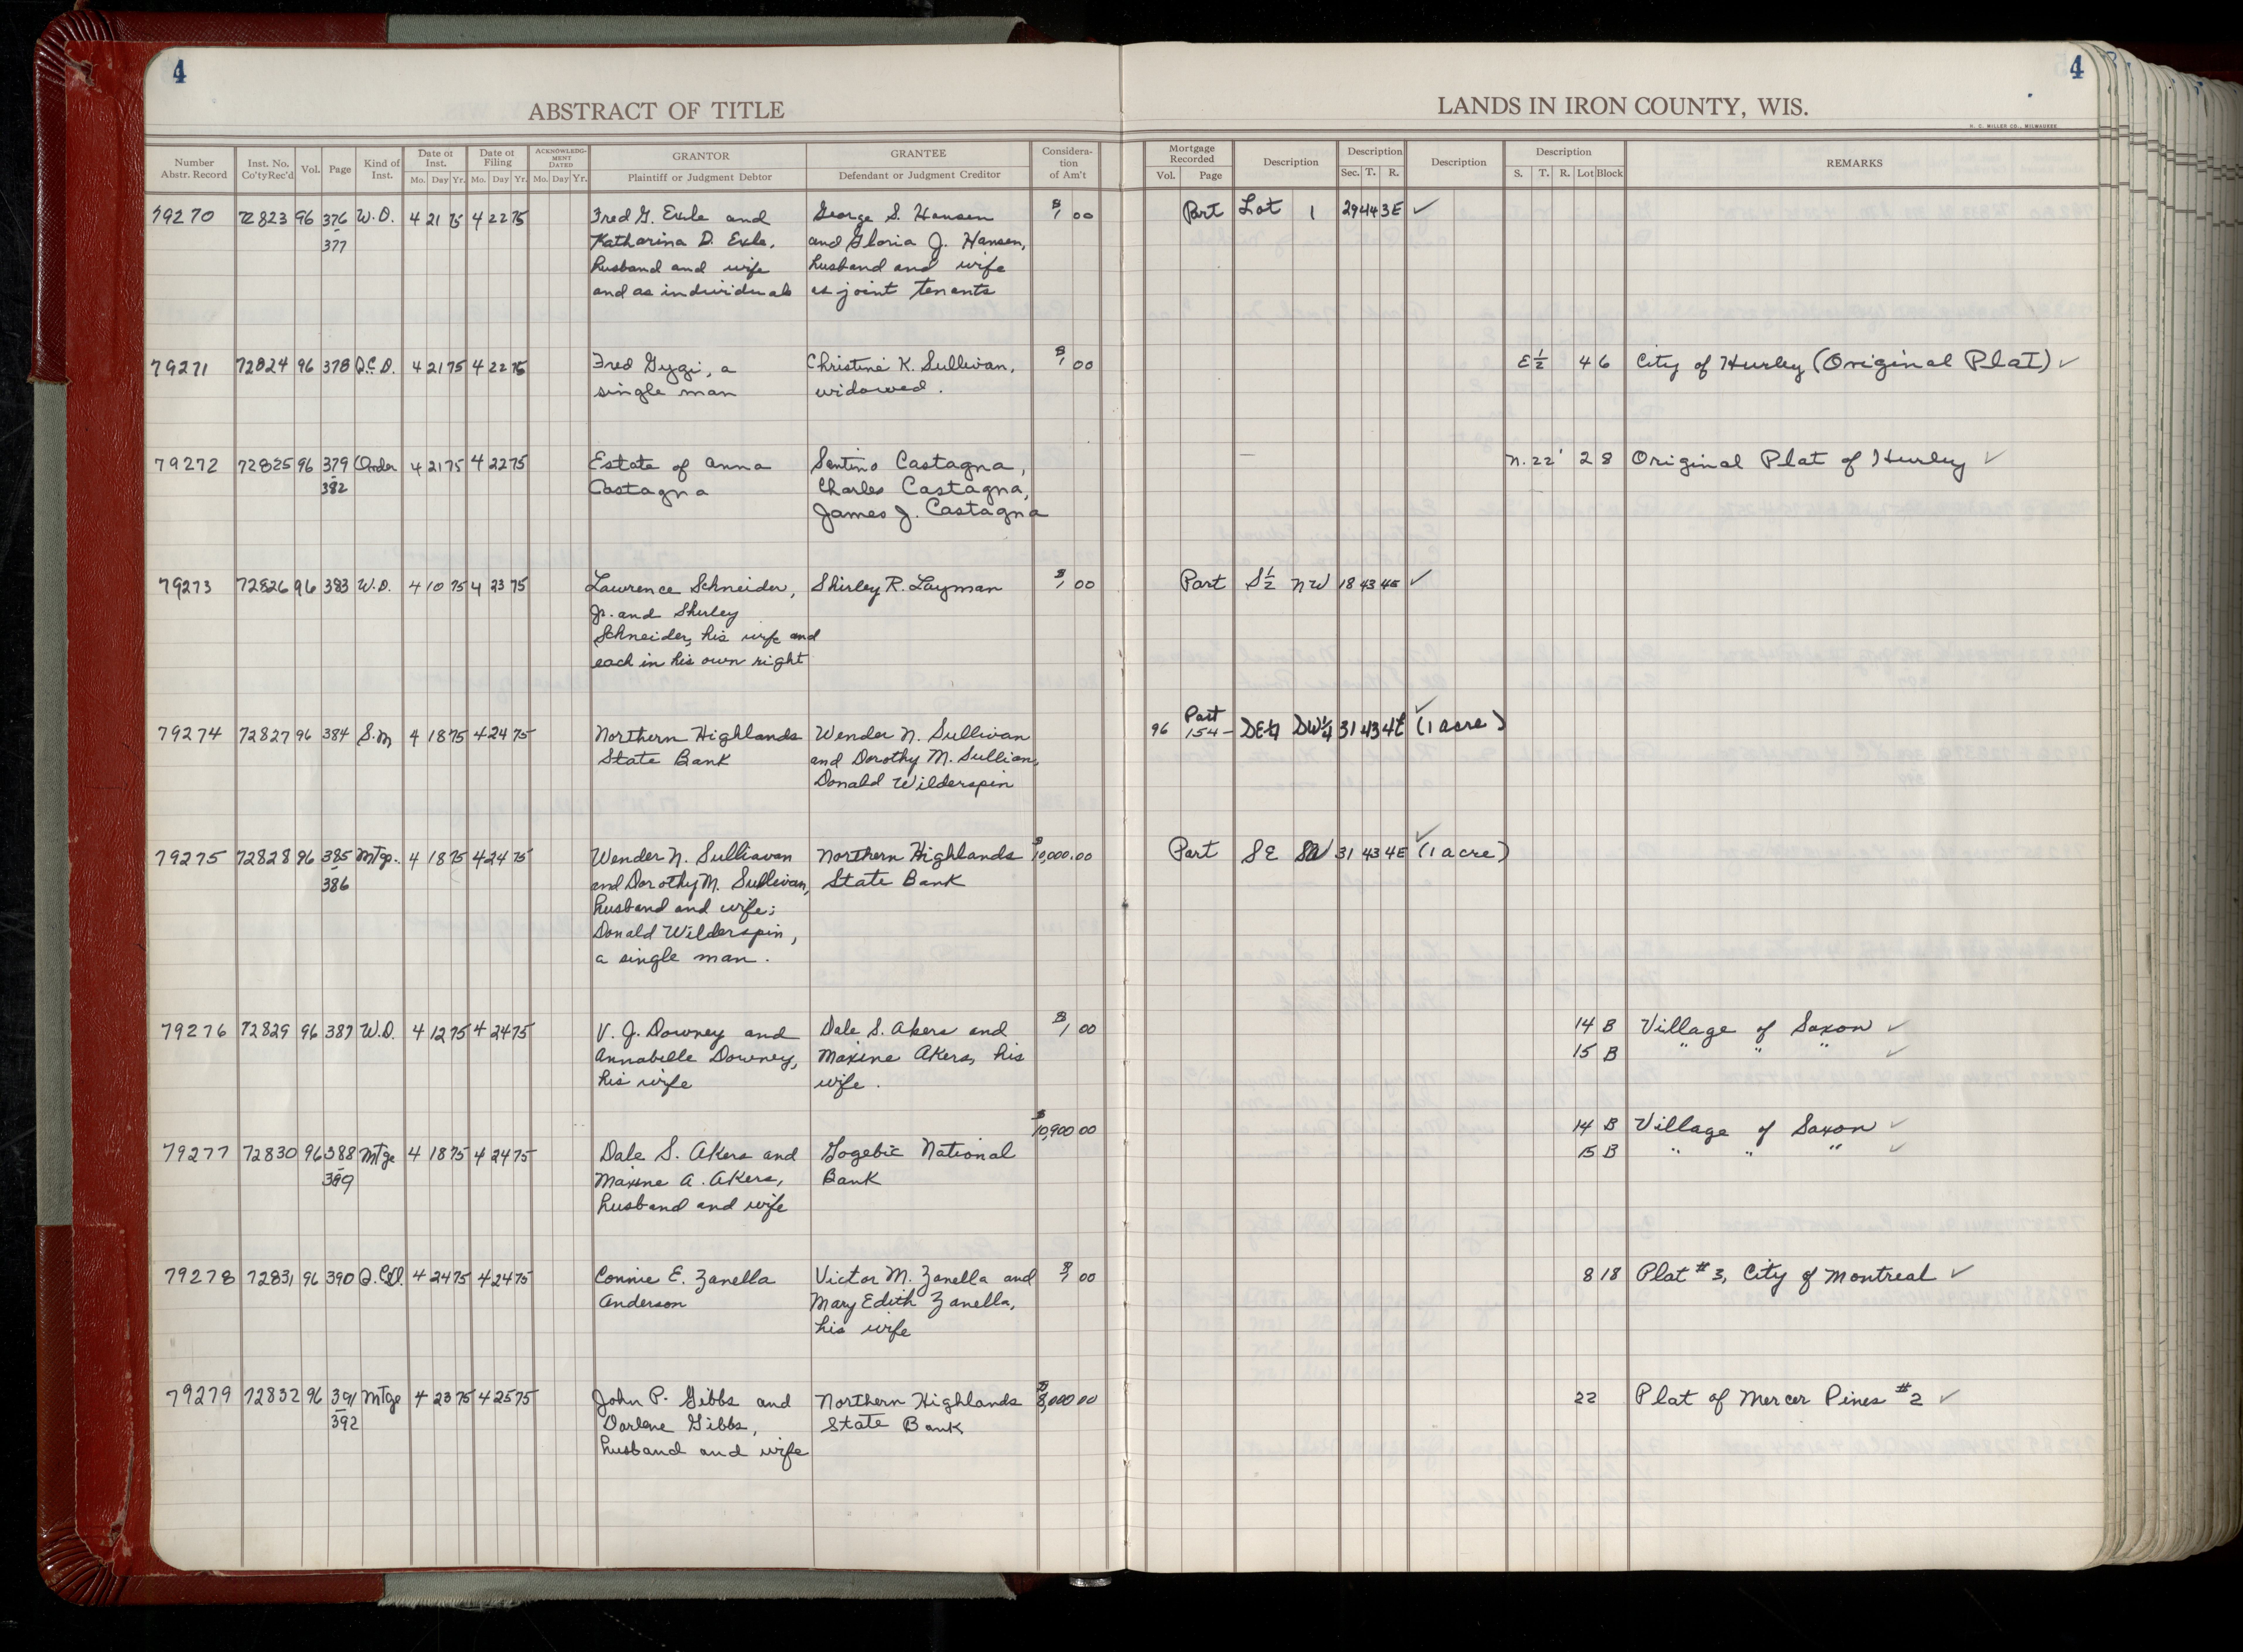 4
4
ABSTRACT OF TITLE
LANDS IN IRON COUNTY, WIS.
H. C. MILLER CO., MILWAUKEE
Number Abstr. Record Inst. No. Co'ty Rec'd Vol. Page Kind of Inst. Date of Inst. Mo. Day Yr. Date of Filing Mo. Day Yr. ACKNOWLEDGMENT DATED Mo. Day Yr. GRANTOR Plaintiff or Judgment Debtor GRANTEE Defendant or Judgment Creditor Consideration of Am't Mortgage Recorded Vol. Page Description Description Sec. T. R. Description Description S. T. R. Lot Block REMARKS
79270 72823 96 376 W.D. 4 21 75 4 22 75 Fred G. Exle and George S. Hansen $1 00 Part Lot 1 29 44 3E ✓
- 377 Katharina D. Exle, and Gloria J. Hansen,
husband and wife husband and wife
and as individuals as joint tenants
79271 72824 96 378 Q.C.D. 4 21 75 4 22 75 Fred Gygi, a Christine K. Sullivan, $1 00 E½ 4 6 City of Hurley (Original Plat) ✓
single man widowed.
79272 72825 96 379 Order 4 21 75 4 22 75 Estate of Anna Santino Castagna, — N. 22' 2 8 Original Plat of Hurley ✓
- 382 Castagna Charles Castagna,
James J. Castagna
79273 72826 96 383 W.D. 4 10 75 4 23 75 Lawrence Schneider, Shirley R. Layman $1 00 Part S½ NW 18 43 4E ✓
Jr. and Shirley
Schneider, his wife and
each in his own right
79274 72827 96 384 S.M 4 18 75 4 24 75 Northern Highlands Wender N. Sullivan 96 Part 154 - SE¼ SW¼ 31 43 4E (1 acre) ✓
State Bank and Dorothy M. Sullian,
Donald Wilderspin
79275 72828 96 385 Mtge. 4 18 75 4 24 75 Wender N. Sulliavan Northern Highlands $10,000.00 Part SE SW 31 43 4E (1 acre) ✓
- 386 and Dorothy M. Sullivan, State Bank
husband and wife;
Donald Wilderspin,
a single man.
79276 72829 96 387 W.D. 4 12 75 4 24 75 V. J. Downey and Dale S. Akers and $1 00 14 B Village of Saxon ✓
Annabelle Downey, Maxine Akers, his 15 B " " " ✓
his wife wife.
79277 72830 96 388 Mtge 4 18 75 4 24 75 Dale S. Akers and Gogebic National $10,900 00 14 B Village of Saxon ✓
- 389 Maxine A. Akers, Bank 15 B " " " ✓
husband and wife
79278 72831 96 390 Q.C.D. 4 24 75 4 24 75 Connie E. Zanella Victor M. Zanella and $1 00 8 18 Plat #3, City of Montreal ✓
Anderson Mary Edith Zanella,
his wife
79279 72832 96 391 Mtge 4 23 75 4 25 75 John P. Gibbs and Northern Highlands $8,000 00 22 Plat of Mercer Pines #2 ✓
- 392 Darlene Gibbs, State Bank
husband and wife